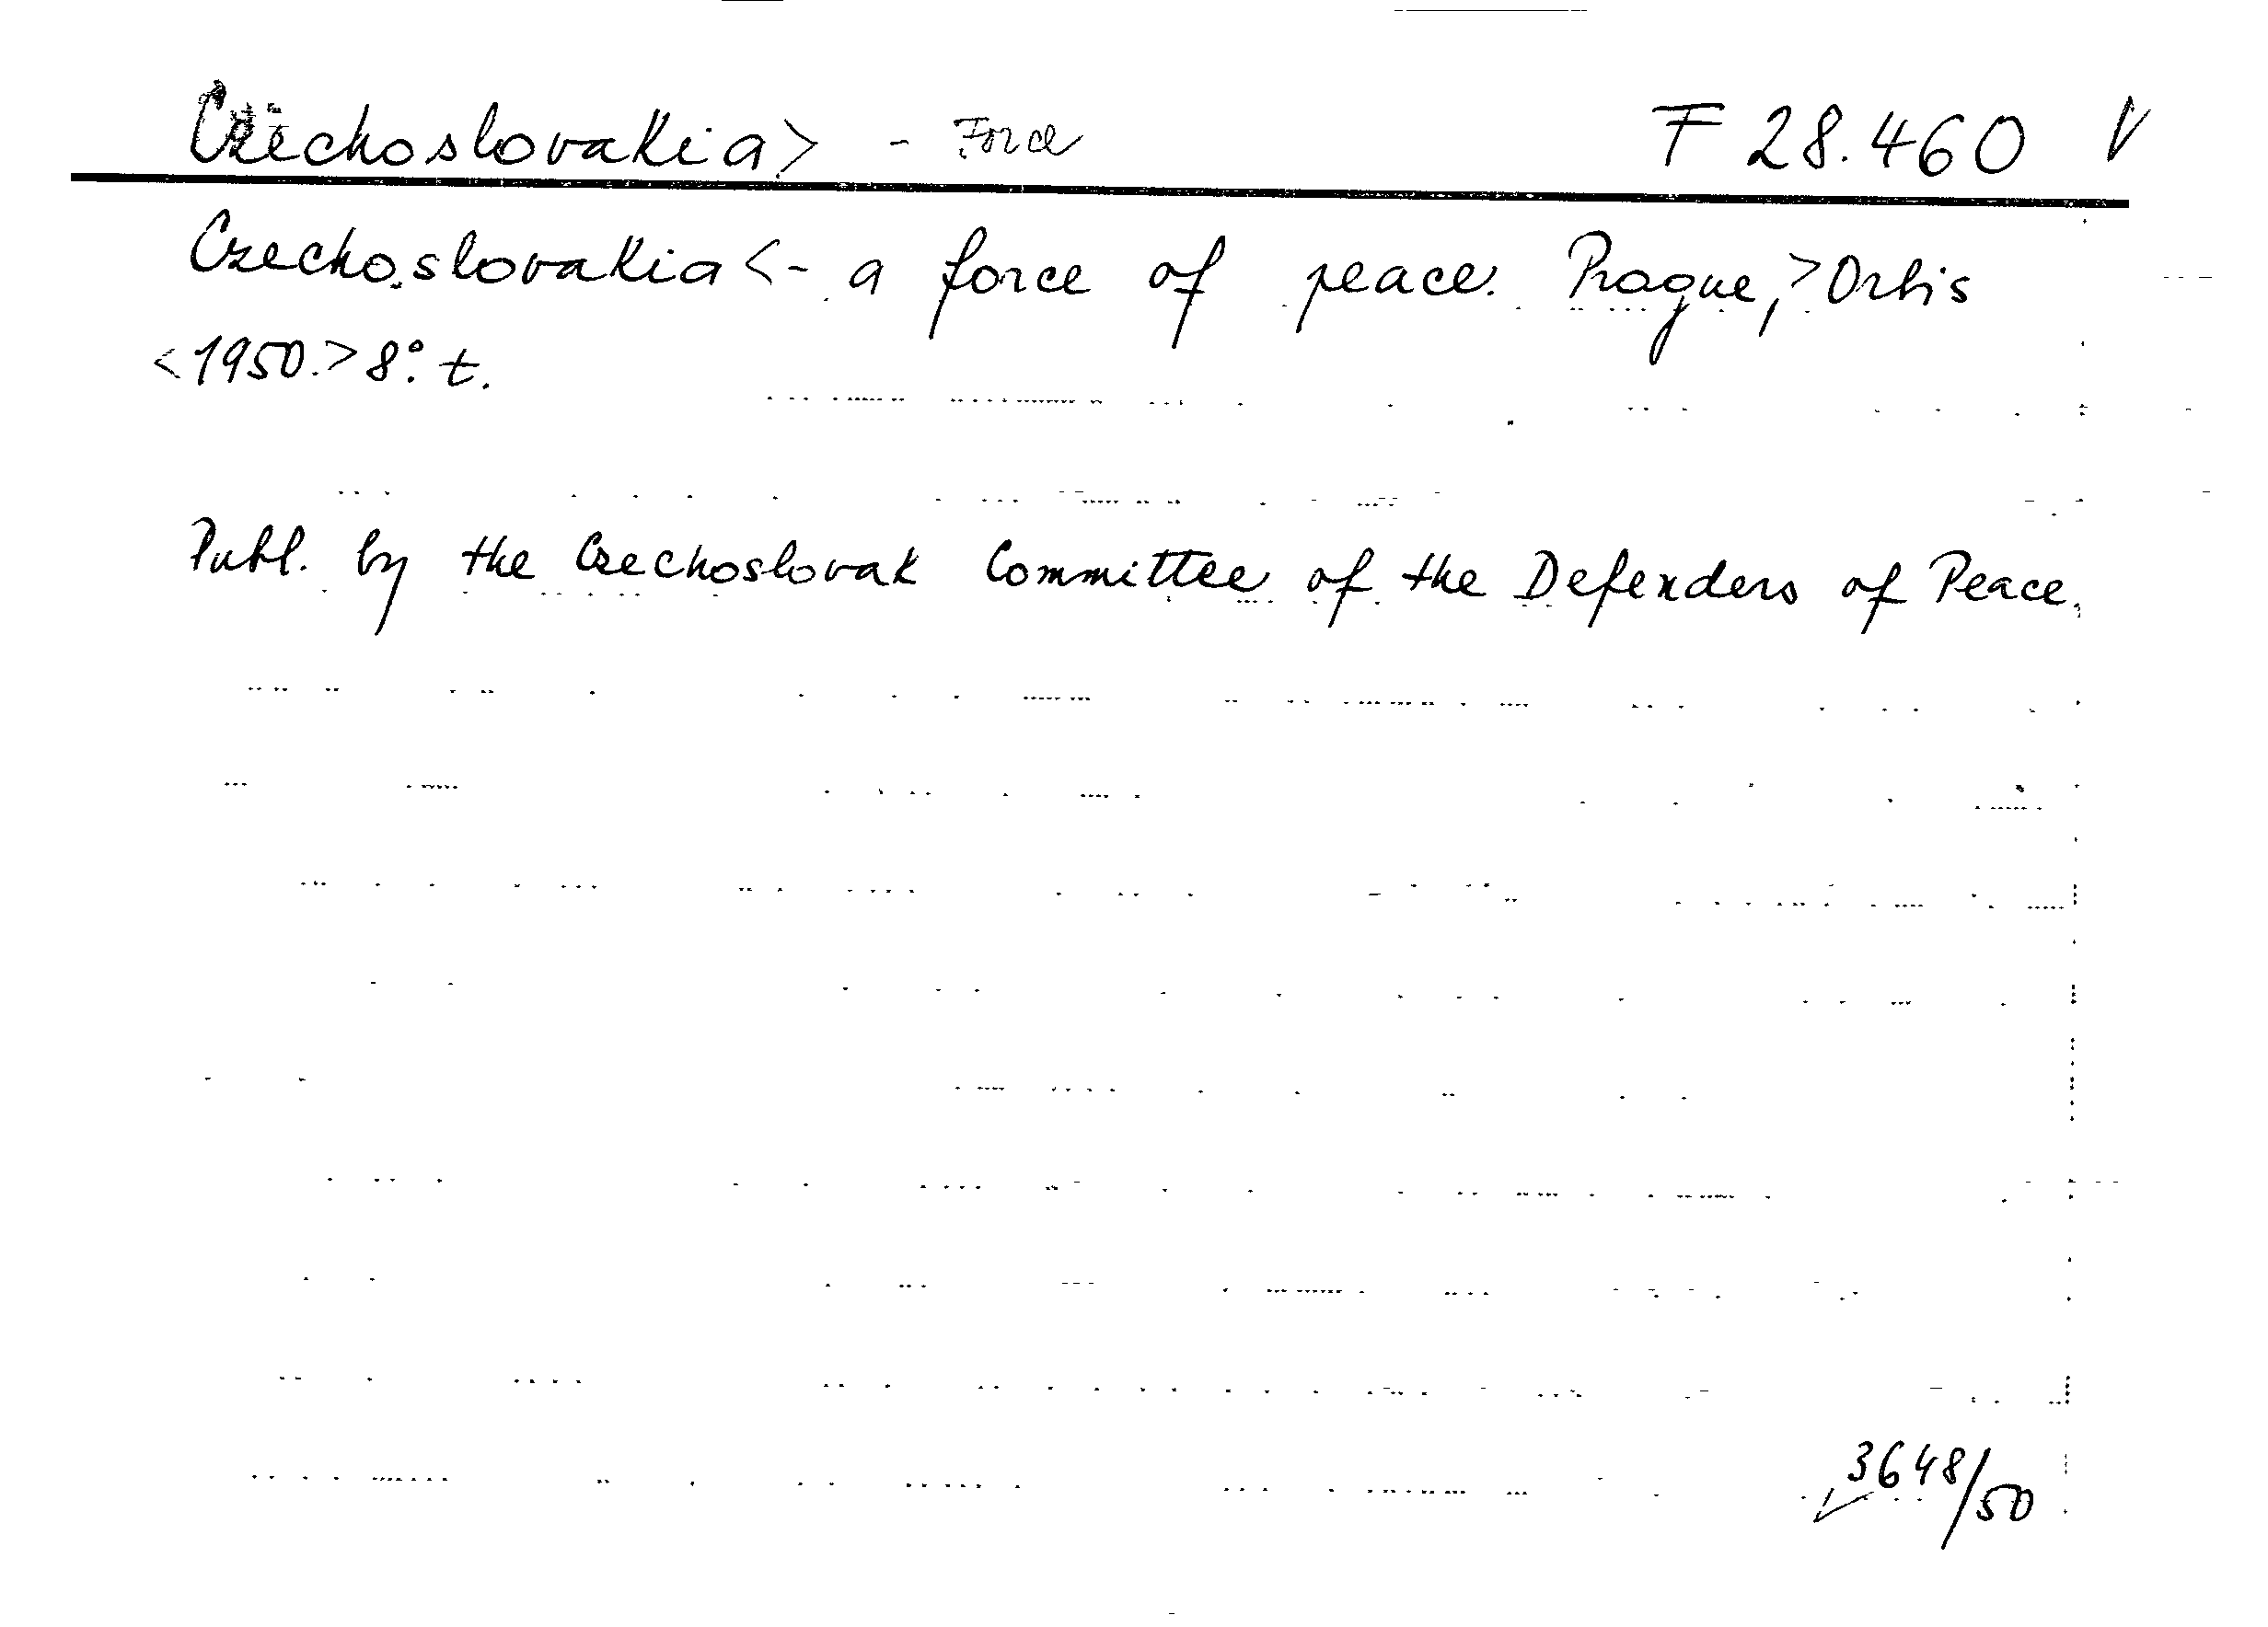 Czechoslovakia> - Force F 28.460 V
Czechoslovakia <- a force of peace. Prague,> Orbis
<1950.> 8°. t.
Publ. by the Czechoslovak Committee of the Defenders of Peace.
3648/50